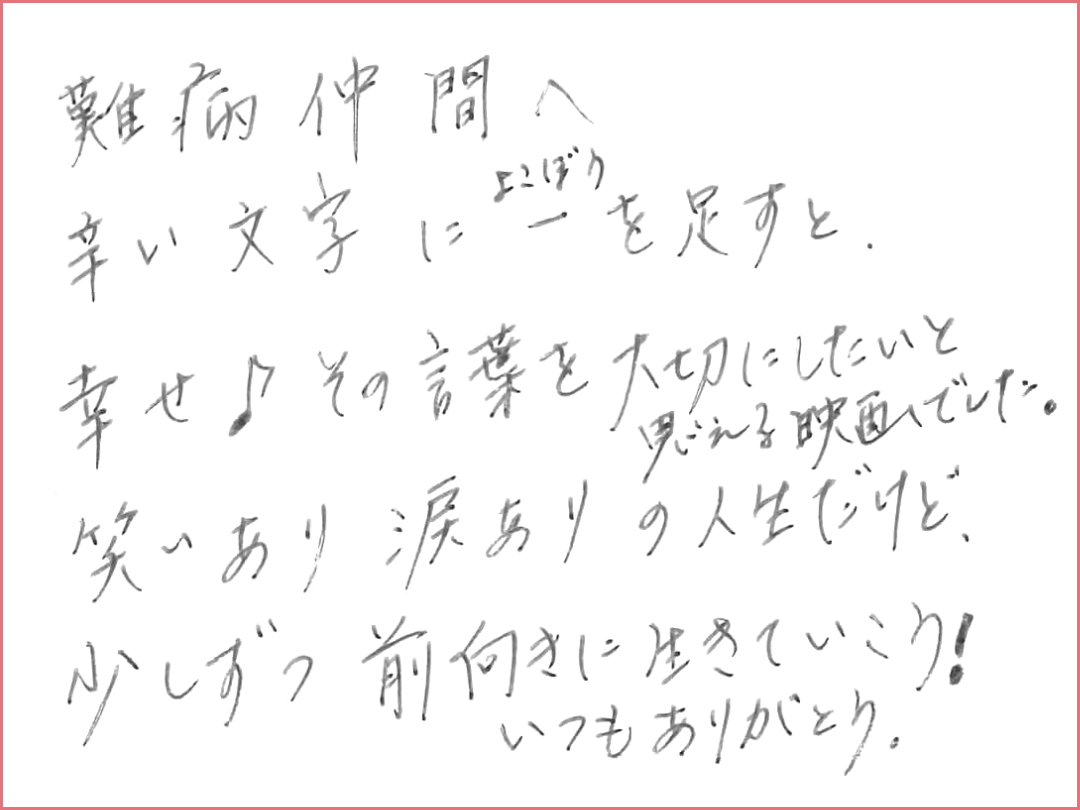 難病仲間へ
よこぼう
辛い文字に一を足すと、
幸せ♪その言葉を大切にしたいと
思える映画でした。
笑いあり涙ありの人生だけど、
少しずつ前向きに生きていこう!
いつもありがとう。